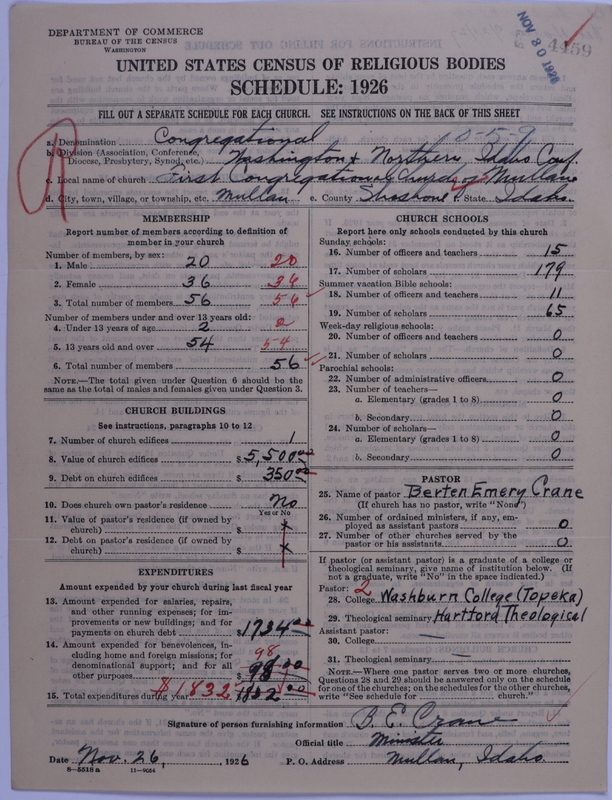 DEPARTMENT OF COMMERCE
BUREAU OF THE CENSUS
WASHINGTON
NOV 30 1926
4459
UNITED STATES CENSUS OF RELIGIOUS BODIES
SCHEDULE: 1926
FILL OUT A SEPARATE SCHEDULE FOR EACH CHURCH. SEE INSTRUCTIONS ON THE BACK OF THIS SHEET
a. Denomination Congregational 10-5-9
b. Division (Association, Conference,
Diocese, Presbytery, Synod, etc.) Washington & Northern Idaho Conf.
c. Local name of church First Congregational Church of Mullan
d. City, town, village, or township, etc. Mullan e. County Shoshone f. State Idaho.
MEMBERSHIP
Report number of members according to definition of
member in your church
Number of members, by sex:
1. Male 20 20
2. Female 36 36
3. Total number of members 56 56
Number of members under and over 13 years old:
4. Under 13 years of age 2 2
5. 13 years old and over 54 54
6. Total number of members 56
NOTE.—The total given under Question 6 should be
same as the total of males and females given under Question 3.
CHURCH BUILDINGS
See instructions, paragraphs 10 to 12
7. Number of church edifices 1
8. Value of church edifices $5,500.00
9. Debt on church edifices $350.00
10. Does church own pastor's residence No
Yes or No
11. Value of pastor's residence (if owned by
church) $ x
12. Debt on pastor's residence (if owned by
church) $ x
EXPENDITURES
Amount expended by your church during last fiscal year
13. Amount expended for salaries, repairs,
and other running expenses; for im-
provements or new buildings; and for
payments on church debt $1734.00
14. Amount expended for benevolences, in-
cluding home and foreign missions; for 98
denominational support; and for all
other purposes $ 98.00
15. Total expenditures during year $1832 1832.00
CHURCH SCHOOLS
Report here only schools conducted by this church
Sunday schools:
16. Number of officers and teachers 15
17. Number of scholars 179
Summer vacation Bible schools:
18. Number of officers and teachers 11
19. Number of scholars 65
Week-day religious schools:
20. Number of officers and teachers 0
21. Number of scholars 0
Parochial schools:
22. Number of administrative officers 0
23. Number of teachers—
a. Elementary (grades 1 to 8) 0
b. Secondary 0
24. Number of scholars—
a. Elementary (grades 1 to 8) 0
b. Secondary 0
PASTOR
25. Name of pastor Berten Emery Crane
(If church has no pastor, write "None")
26. Number of ordained ministers, if any, em-
ployed as assistant pastors 0
27. Number of other churches served by the
pastor or his assistants 0
If pastor (or assistant pastor) is a graduate of a college or
theological seminary, give name of institution below. (If
not a graduate, write "No" in the space indicated.)
Pastor: 2
28. College Washburn College (Topeka)
29. Theological seminary Hartford Theological
Assistant pastor:
30. College —
31. Theological seminary —
NOTE.—Where one pastor serves two or more churches,
Questions 28 and 29 should be answered only on the schedule
for one of the churches; on the schedules for the other churches,
write "See schedule for church."
Signature of person furnishing information B. E. Crane
Official title Minister
Date Nov. 26, 1926 P. O. Address Mullan, Idaho
8-5518a 11-9054